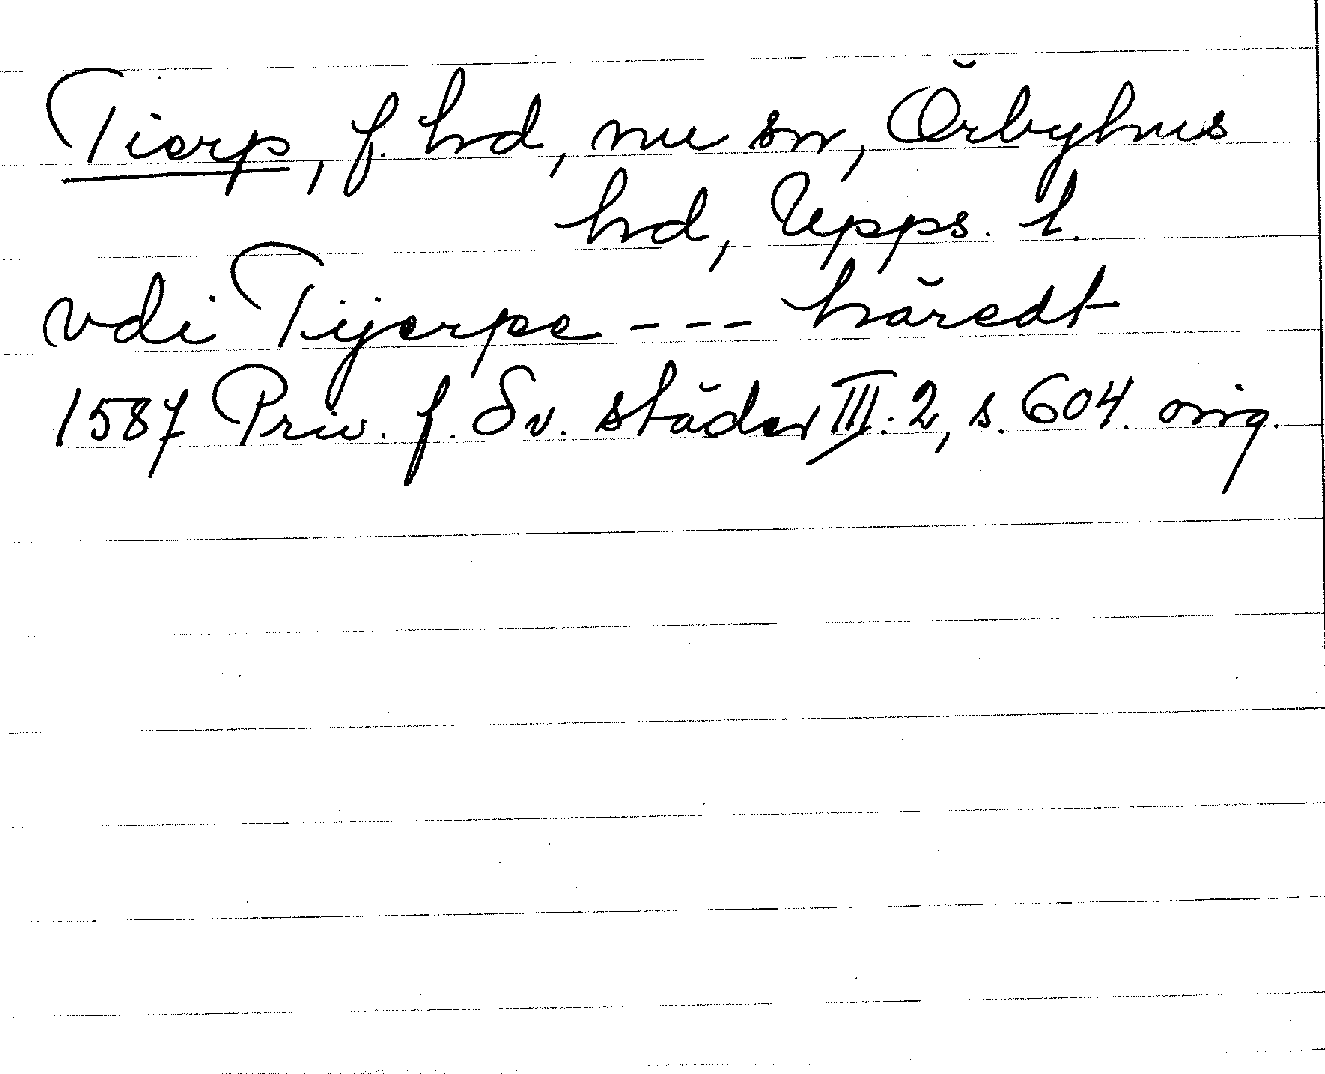 Tierp, f. hd, nu sn, Örbyhus
hd, Upps. l.
vdi Tijerpe --- häredt
1587 Priv. f. Sv. städer III:2, s. 604. orig.